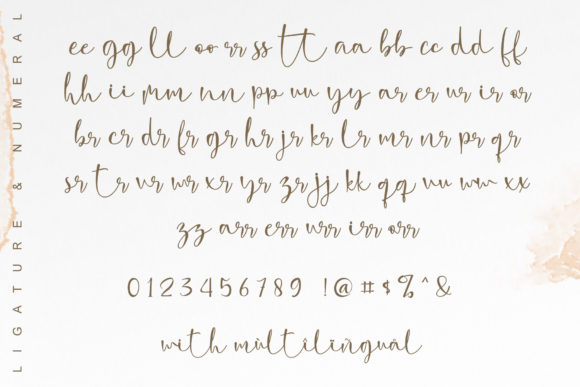 LIGATURE & NUMERAL
ee gg ll oo rr ss tt aa bb cc dd ff
hh ii mm nn pp uu yy ar er ur ir or
br cr dr fr gr hr jr kr lr mr nr pr qr
sr tr vr wr xr yr zr jj kk qq vv ww xx
zz arr err urr irr orr
0123456789 !@#$%^&
with mùltîlïñgúál